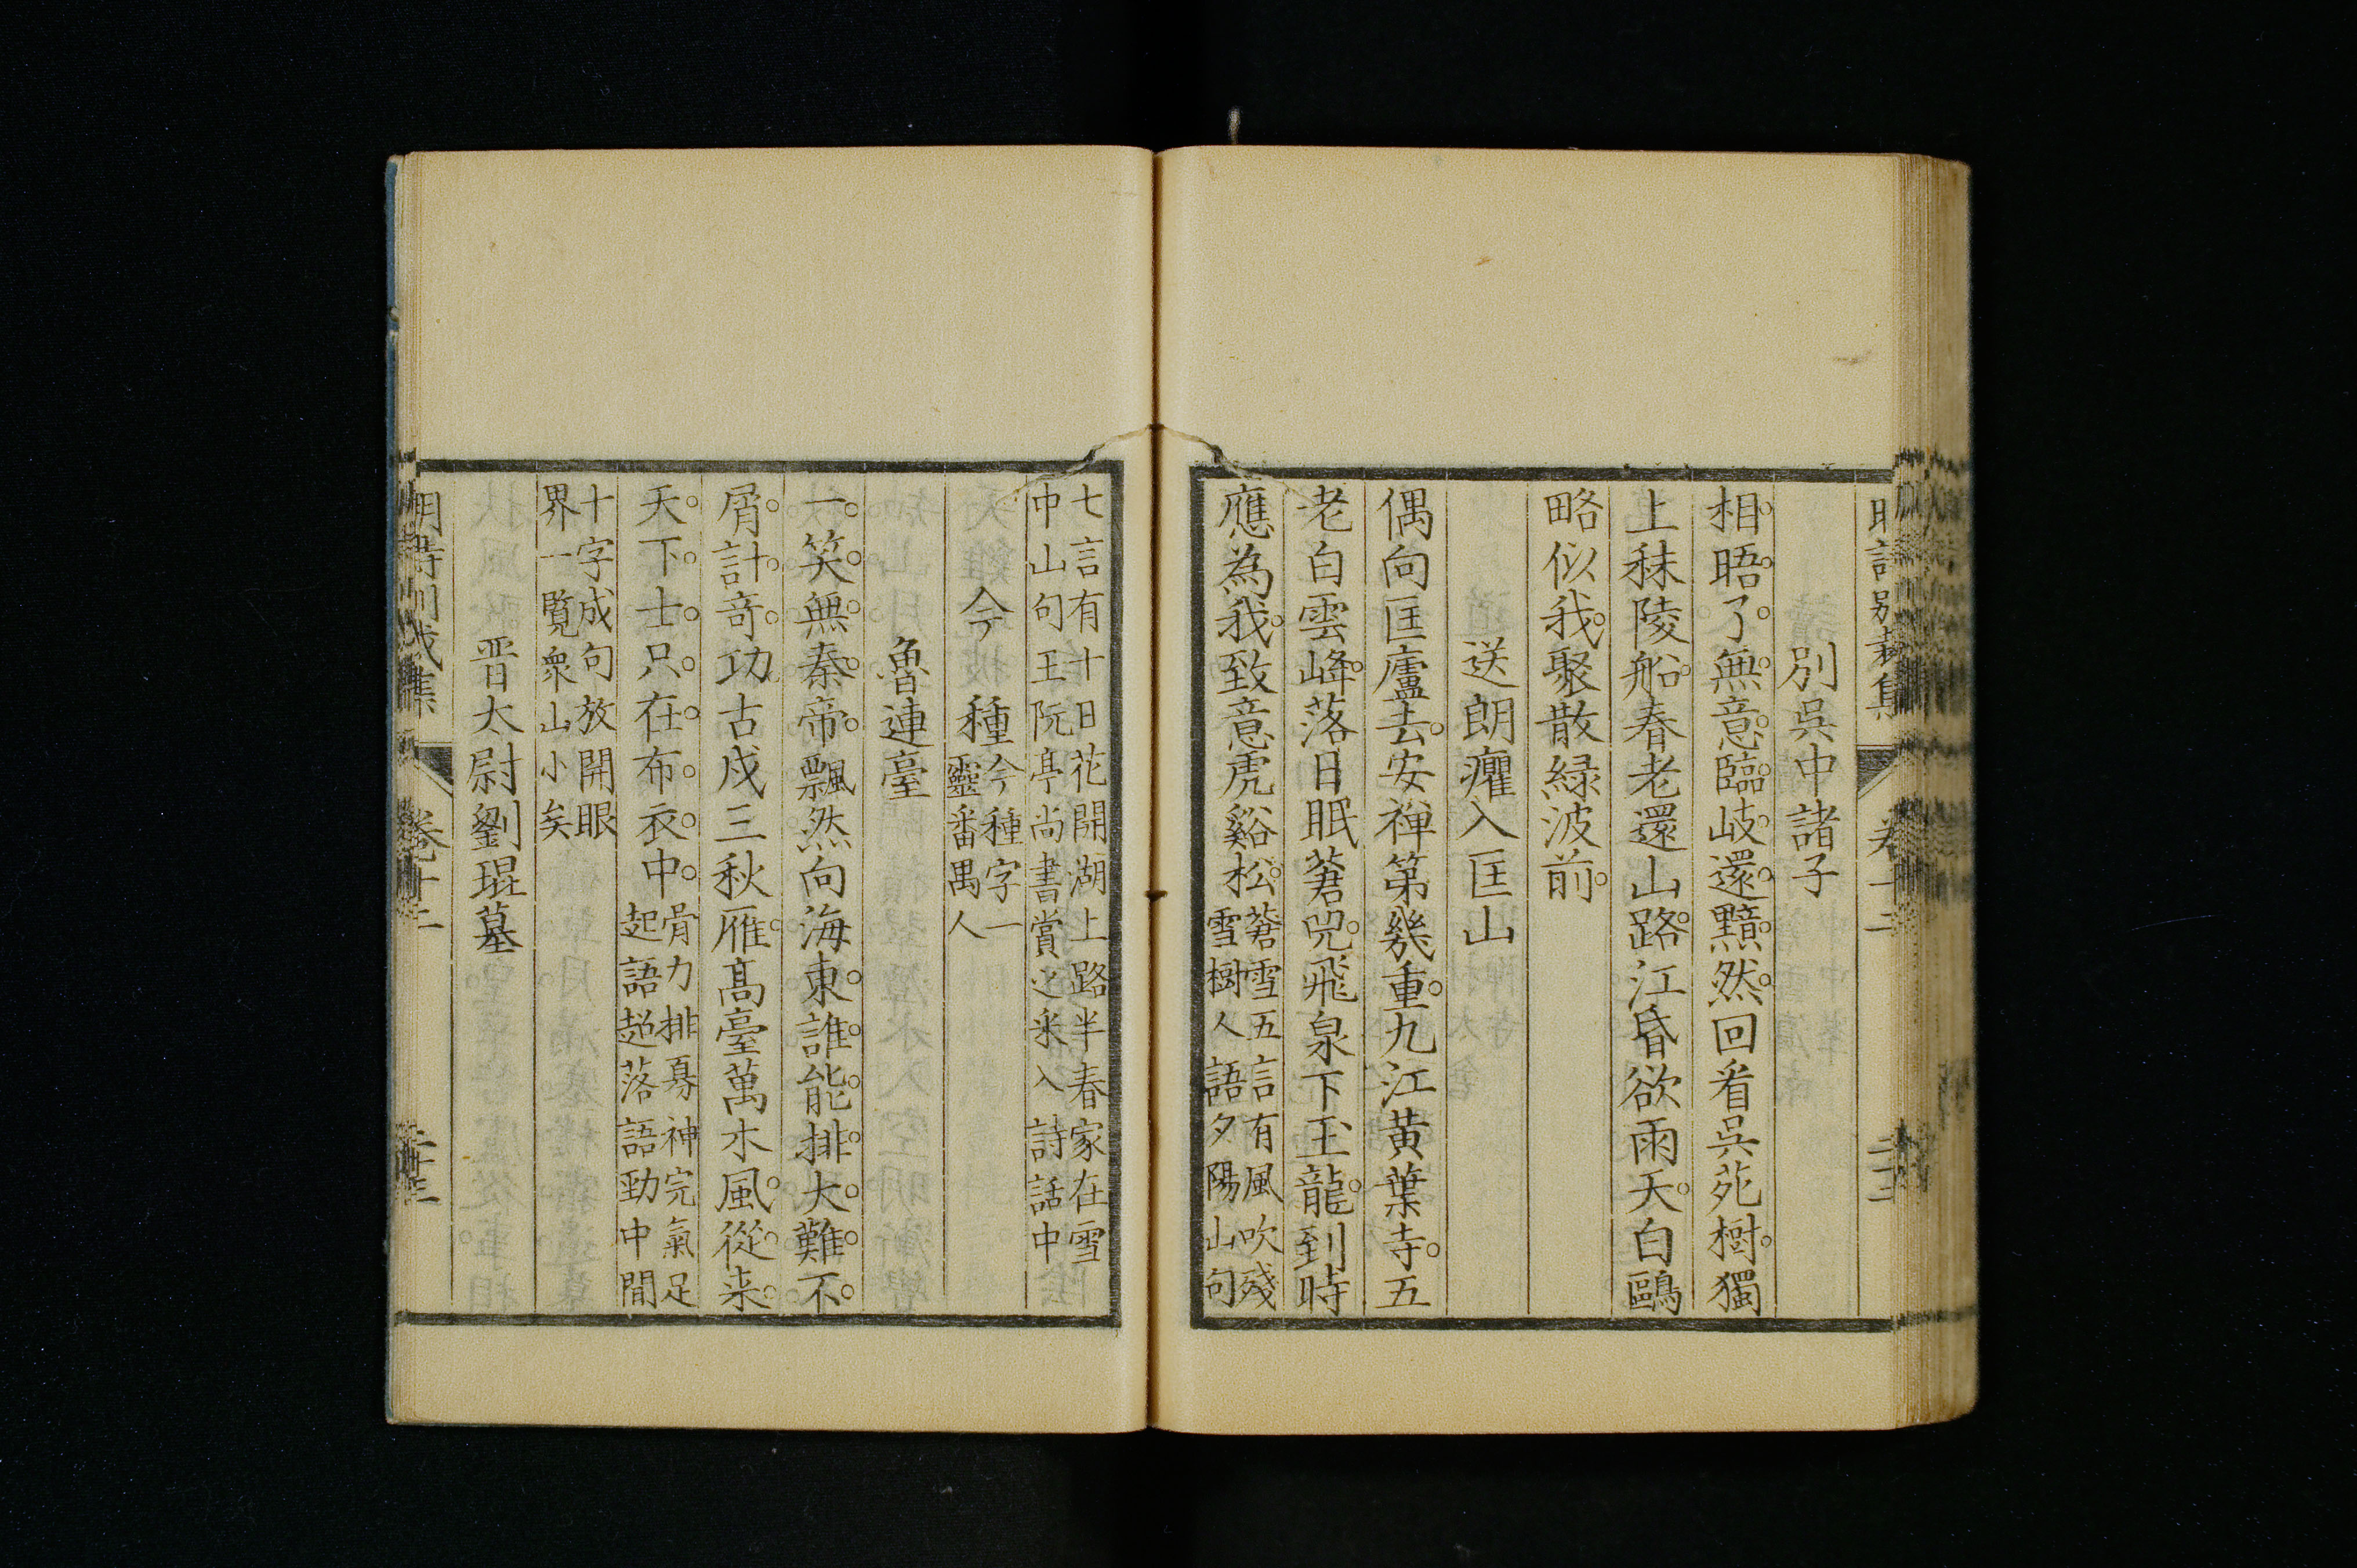 別吳中諸子
相晤了無意臨岐還黯然回看吳苑樹獨
上秣陵船春老還山路江昏欲雨天白鷗
略似我聚散緑波前
送朗癯入匡山
偶向匡廬去安禪第幾重九江黃葉寺五
老白雲峰落日眠蒼兕飛泉下玉龍到時
應為我致意虎谿松
蒼雪五言有風吹殘
雪樹人語夕陽山句
七言有十日花開湖上路半春家在雪
中山句王阮亭尚書賞之采入詩話中
今種
今種字一
靈番禺人
魯連臺
一笑無秦帝飄然向海東誰能排大難不
屑計竒功古戍三秋雁髙臺萬木風從来
天下士只在布衣中
骨力排奡神完氣足
起語超落語勁中間
十字成句放開眼
界一覧衆山小矣
晋太尉劉琨墓
明詩別裁集
卷十二
二十三